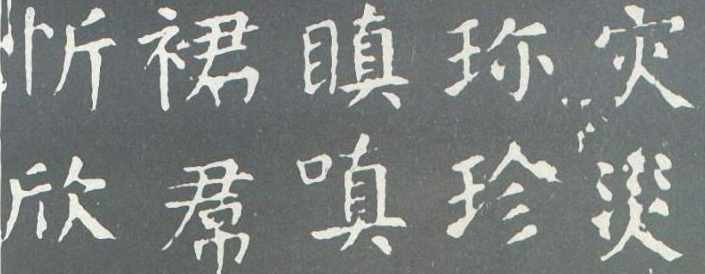 灾災
珎珍
瞋嗔
裙帬
忻欣